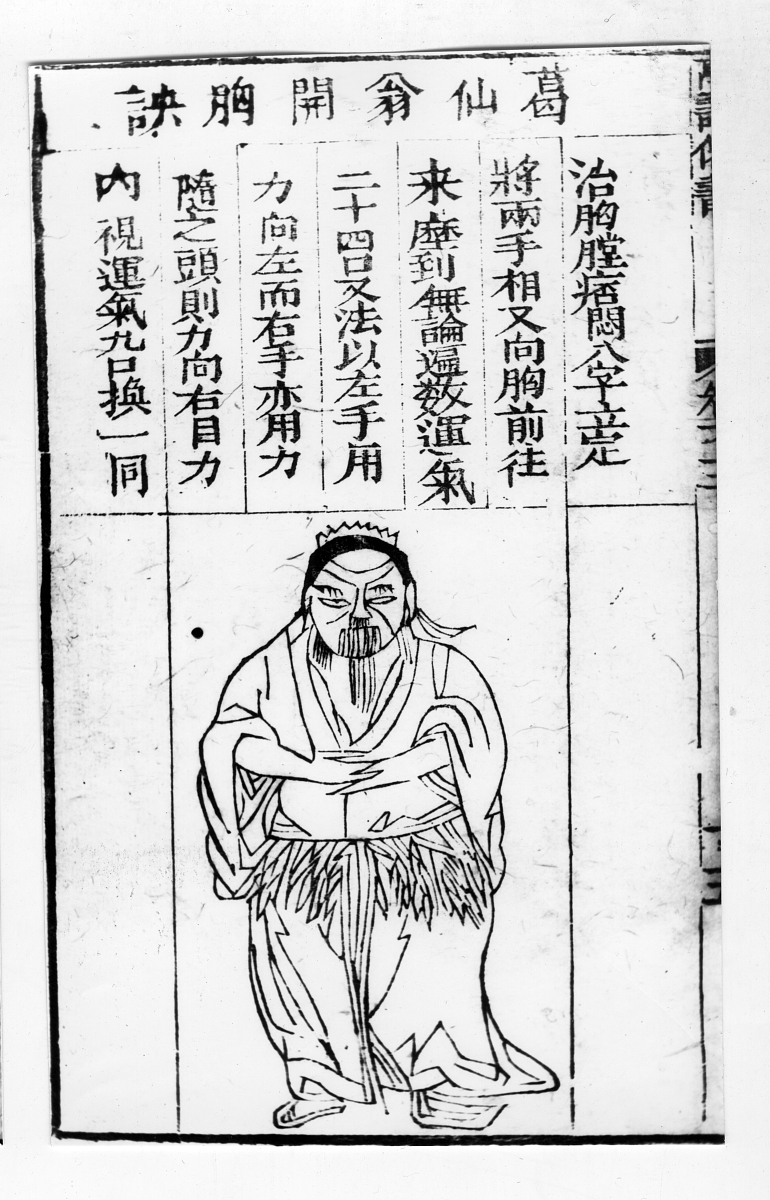 葛仙翁開胸訣
治胸膛痞悶八字立定
將兩手相叉向胸前往
来磨到無論遍数運氣
二十四口又法以左手用
力向左而右手亦用力
隨之頭則力向右目力
内視運氣九口換一同